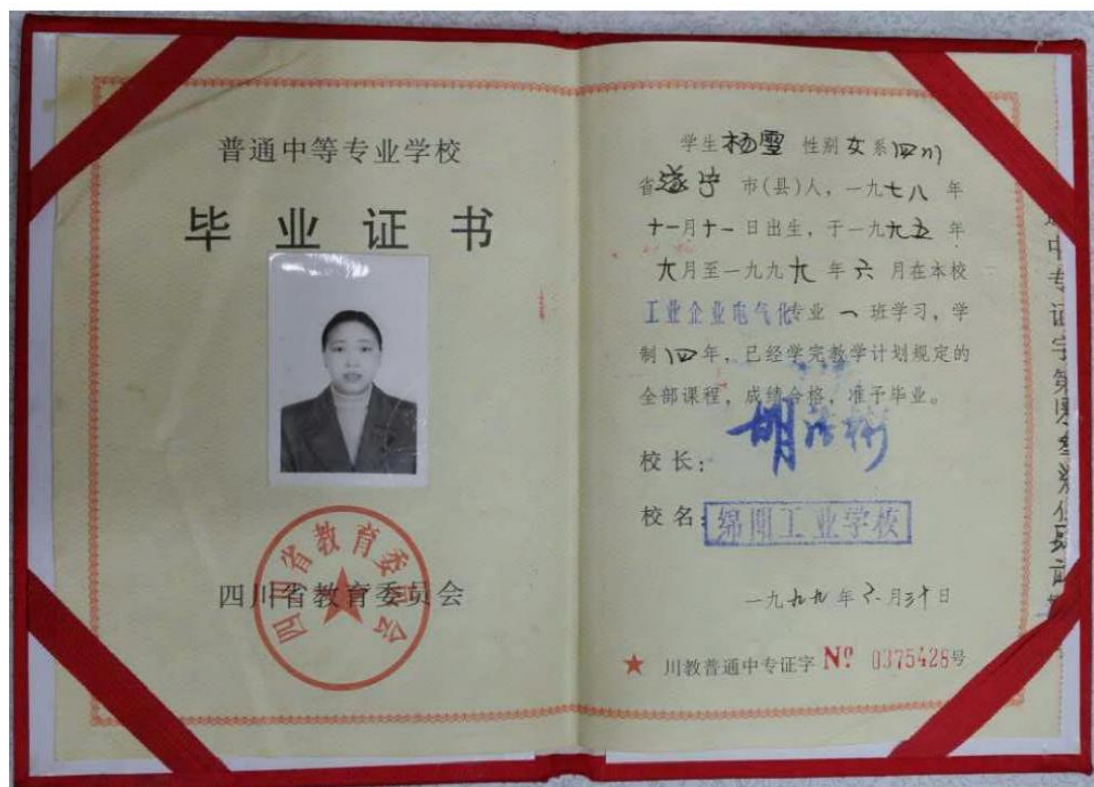 普通中等专业学校
毕业证书
四川省教育委员会
四川省教育委员会
学生杨雪 性别女系四川
省遂宁 市(县)人，一九七八 年
十一月十一日出生，于一九九五 年
九月至一九九九 年 六 月在本校
工业企业电气化专业 一 班学习，学
制四年，已经学完教学计划规定的
全部课程，成绩合格，准予毕业。
校长：胡
校名：绵阳工业学校
一九九九年六月三十日
★ 川教普通中专证字 Nº 0375428号
中专证字第